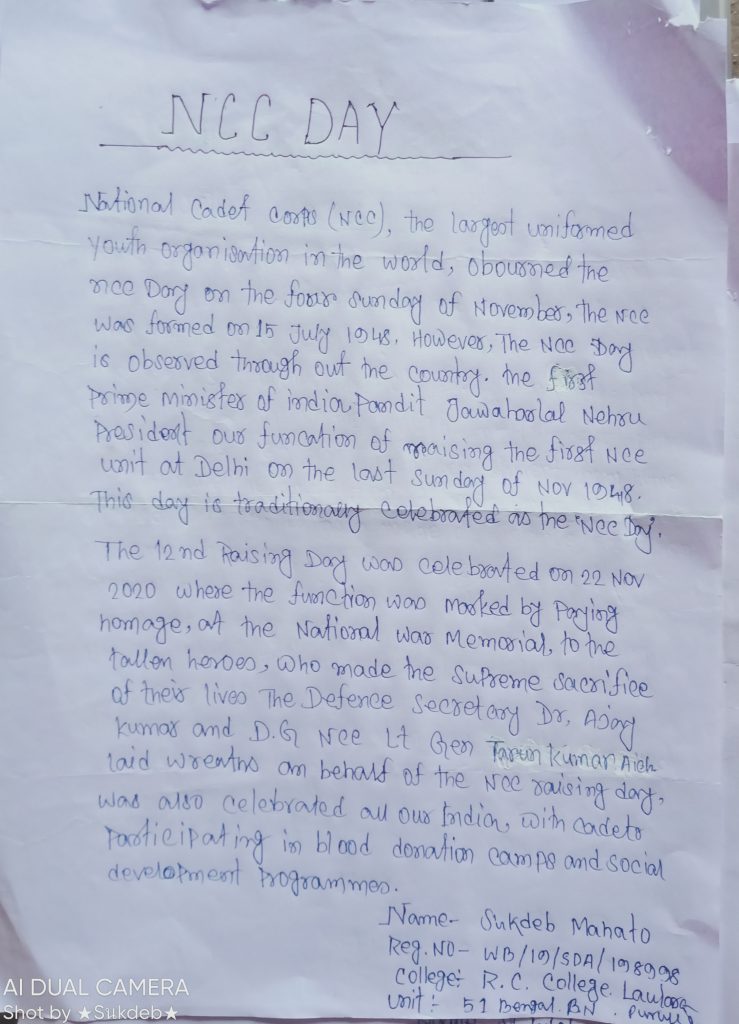 NCC DAY
National Cadet Corps (NCC), the largest uniformed
youth organisation in the world, obourned the
ncc Day on the four sunday of November, The NCC
was formed on 15 July 1948. However, The NCC Day
is observed through out the country. The first
Prime minister of india Pandit Jawaharlal Nehru
President our funcation of raising the first NCC
unit at Delhi on the last sunday of Nov 1948.
This day is traditionally celebrated as the "NCC Day".
The 12nd Raising Day was celebrated on 22 Nov
2020 where the function was marked by Paying
homage, at the National War Memorial, to the
fallen heroes, who made the supreme sacrifice
of their lives The Defence Secretary Dr. Ajay
Kumar and D.G NCC Lt Gen Tarun Kumar Aich
laid wreaths on behalf of the NCC raising day,
was also celebrated all our India, with cadets
Participating in blood donation camps and social
development Programmes.
Name- Sukdeb Mahato
Reg. NO- WB/19/SDA/198998
College:- R.C. College
Unit:- 51 Bengal. BN.
AI DUAL CAMERA
Shot by ★Sukdeb★